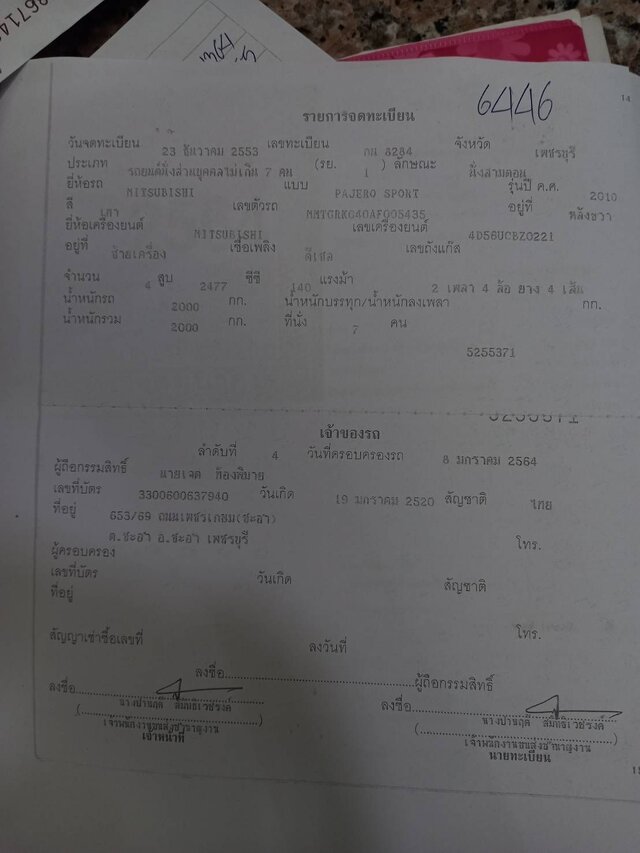 14
6446
รายการจดทะเบียน
วันจดทะเบียน 23 ธันวาคม 2553 เลขทะเบียน กน 8284 จังหวัด เพชรบุรี
ประเภท รถยนต์นั่งส่วนบุคคลไม่เกิน 7 คน (รย. 1 ) ลักษณะ นั่งสามตอน
ยี่ห้อรถ MITSUBISHI แบบ PAJERO SPORT รุ่นปี ค.ศ. 2010
สี เทา เลขตัวรถ MMTGRKG40AF005435 อยู่ที่ หลังขวา
ยี่ห้อเครื่องยนต์ MITSUBISHI เลขเครื่องยนต์ 4D56UCBZ0221
อยู่ที่ ซ้ายเครื่อง เชื้อเพลิง ดีเซล เลขถังแก๊ส
จำนวน 4 สูบ 2477 ซีซี 140 แรงม้า 2 เพลา 4 ล้อ ยาง 4 เส้น
น้ำหนักรถ 2000 กก. น้ำหนักบรรทุก/น้ำหนักลงเพลา กก.
น้ำหนักรวม 2000 กก. ที่นั่ง 7 คน
5255371
เจ้าของรถ
ลำดับที่ 4 วันที่ครอบครองรถ 8 มกราคม 2564
ผู้ถือกรรมสิทธิ์ นายเจต ท้องพิมาย
เลขที่บัตร 3300600637940 วันเกิด 19 มกราคม 2520 สัญชาติ ไทย
ที่อยู่ 653/69 ถนนเพชรเกษม(ชะอำ)
ต.ชะอำ อ.ชะอำ เพชรบุรี โทร.
ผู้ครอบครอง
เลขที่บัตร วันเกิด สัญชาติ
ที่อยู่
โทร.
สัญญาเช่าซื้อเลขที่ ลงวันที่
ลงชื่อ ผู้ถือกรรมสิทธิ์
ลงชื่อ ลงชื่อ
เจ้าพนักงานขนส่งชำนาญงาน เจ้าพนักงานขนส่งชำนาญงาน
เจ้าหน้าที่ นายทะเบียน